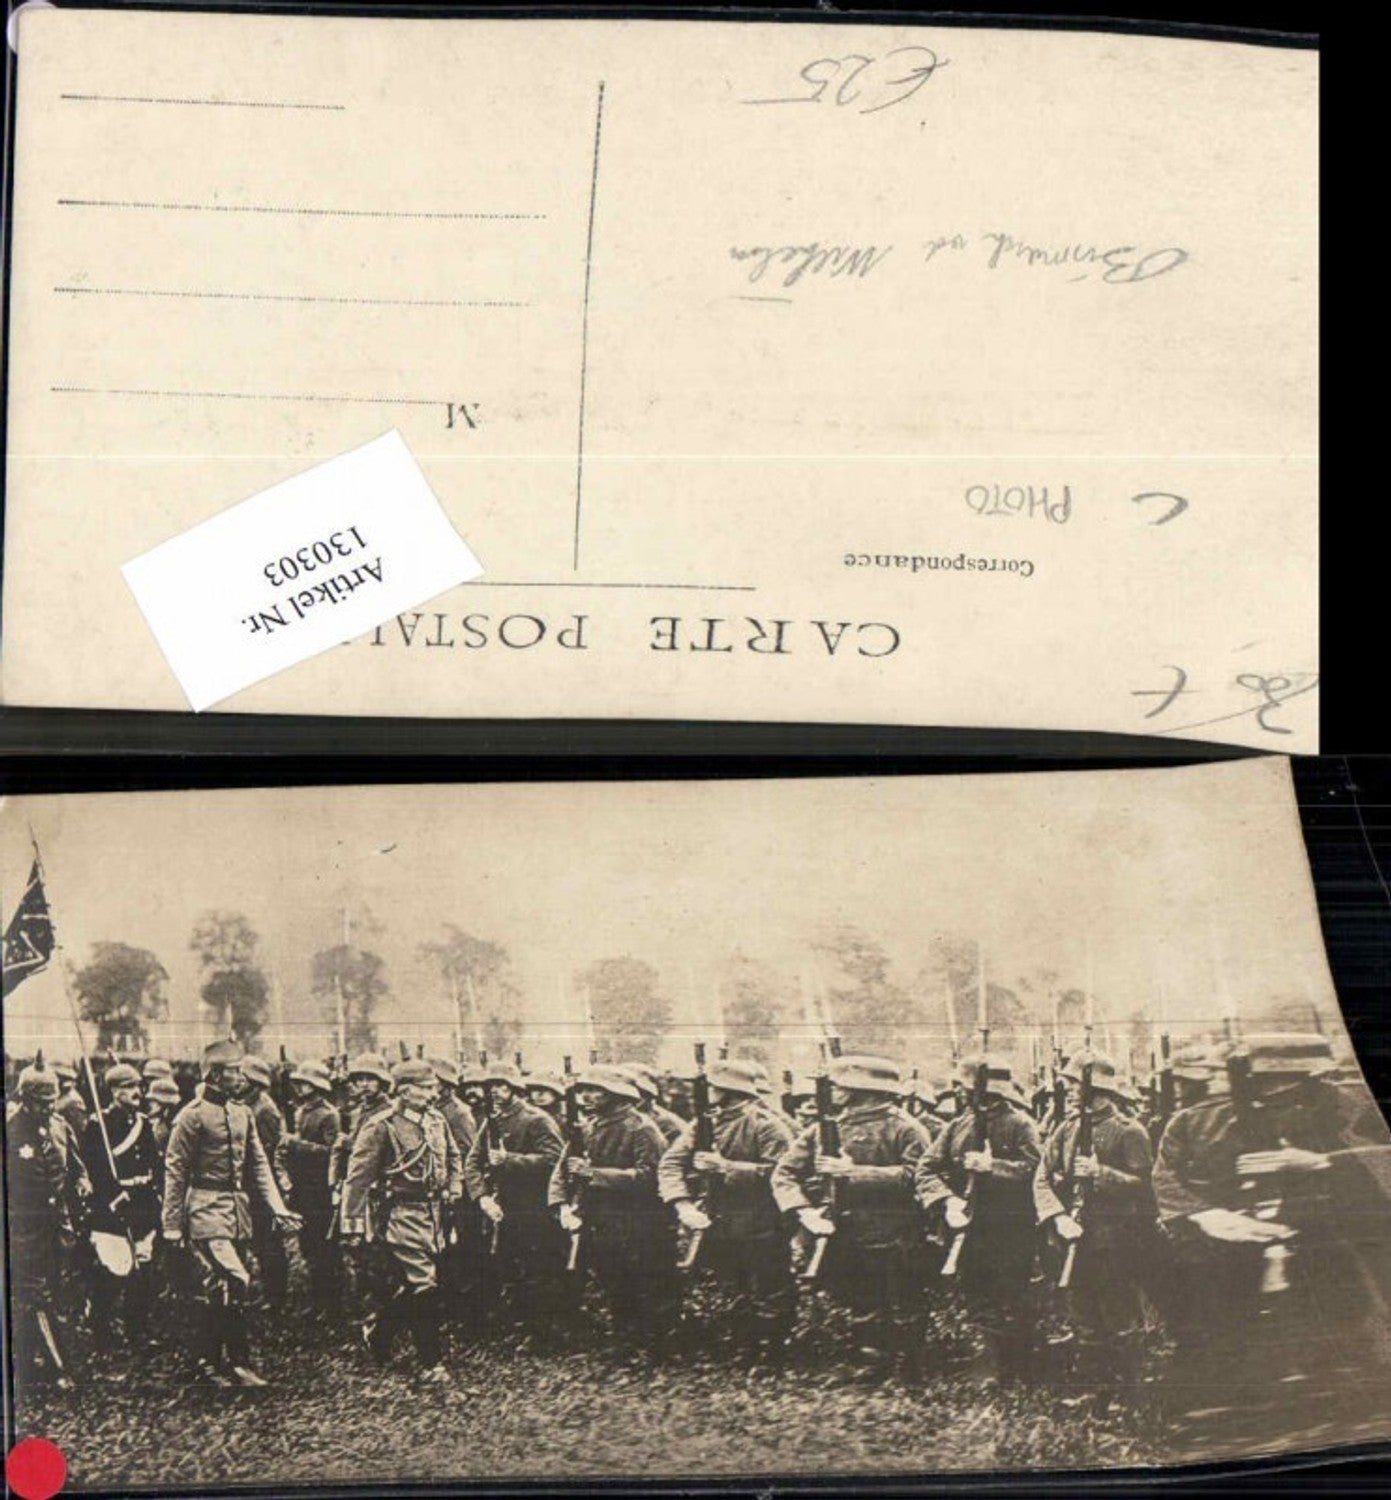 CARTE POSTAL
Correspondance
C PHOTO
M
Bismarck vd Wilhelm
£25
Artikel Nr.
130303